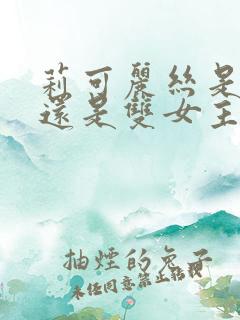 莉可麗絲是
還是雙女主
抽煙的兔子
未经同意禁止转载